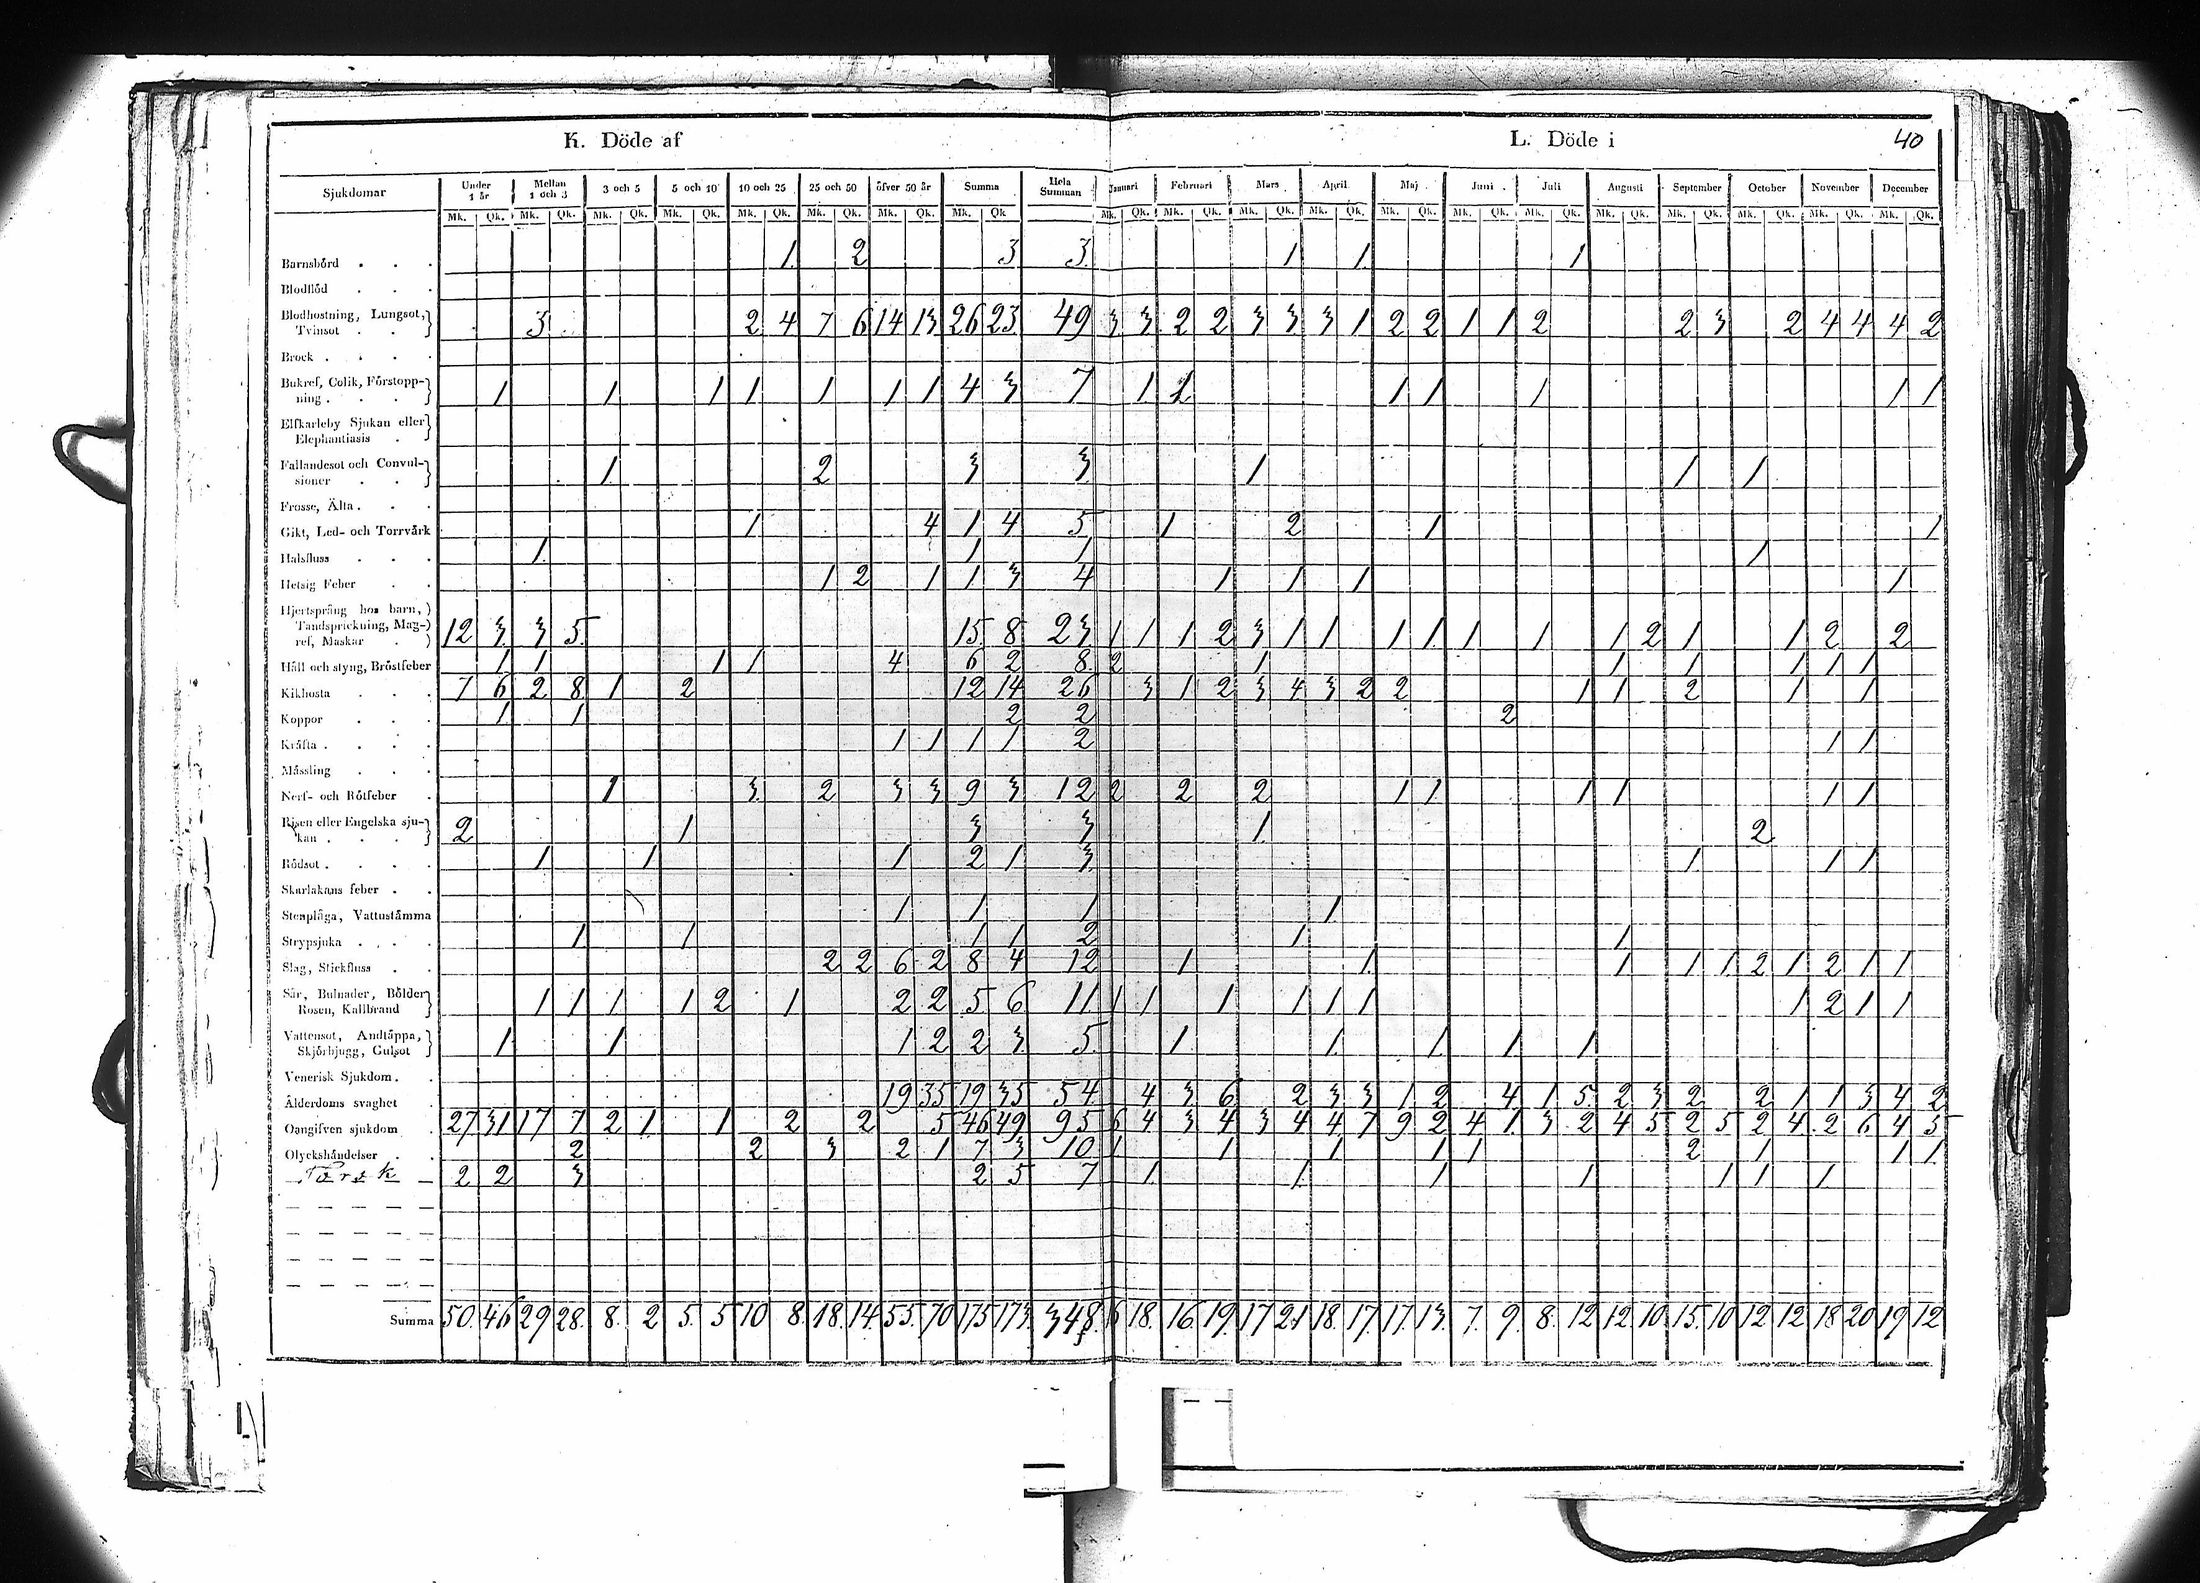 K. Döde af
L. Döde i
40
Sjukdomar Under 1 år Mellan 1 och 3 3 och 5 5 och 10 10 och 25 25 och 50 öfver 50 år Summa Hela Summan Januari Februari Mars April Maj Juni Juli Augusti September October November December
Mk. Qk. Mk. Qk. Mk. Qk. Mk. Qk. Mk. Qk. Mk. Qk. Mk. Qk. Mk. Qk. Mk. Qk. Mk. Qk. Mk. Qk. Mk. Qk. Mk. Qk. Mk. Qk. Mk. Qk. Mk. Qk. Mk. Qk. Mk. Qk. Mk. Qk. Mk. Qk.
Barnsbörd . . . 1 2 3 3 1 1 1
Blodflöd . . .
Blodhostning, Lungsot,
Tvinsot . . 3 2 4 7 6 14 13 26 23 49 3 3 2 2 3 3 3 1 2 2 1 1 2 2 3 2 4 4 4 2
Brock . . . .
Bukref, Colik, Förstopp-
ning . . . . 1 1 1 1 1 1 1 4 3 7 1 1 1 1 1 1 1
Elfkarleby Sjukan eller
Elephantiasis .
Fallandesot och Convul-
sioner . . 1 2 3 3 1 1 1
Frosse, Älta . . .
Gikt, Led- och Torrvärk 1 4 1 4 5 1 2 1 1
Halsfluss . . . 1 1 1 1
Hetsig Feber . . 1 2 1 1 3 4 1 1 1 1
Hjertsprång hos barn,
Tandsprickning, Mag-
ref, Maskar . 12 3 3 5 15 8 23 1 1 1 2 3 1 1 1 1 1 1 1 2 1 1 2 2
Håll och styng, Bröstfeber 1 1 1 1 4 6 2 8 2 1 1 1 1 1 1
Kikhosta . . . 7 6 2 8 1 2 12 14 26 3 1 2 3 4 3 2 2 1 1 2 1 1
Koppor . . . 1 1 2 2 2
Kräfta . . . . 1 1 1 1 2 1 1
Mässling . . .
Nerf- och Rötfeber . 1 3 2 3 3 9 3 12 2 2 2 1 1 1 1 1 1
Risen eller Engelska sju-
kan . . . . 2 1 3 3 1 2
Rödsot . . . . 1 1 1 2 1 3 1 1 1
Skarlakans feber . .
Stenplåga, Vattustämma 1 1 1 1
Strypsjuka . . . . 1 1 1 1 2 1 1
Slag, Stickfluss . . 2 2 6 2 8 4 12 1 1 1 1 1 2 1 2 1 1
Sår, Bulnader, Bölder
Rosen, Kallbrand 1 1 1 1 2 1 2 2 5 6 11 1 1 1 1 1 1 1 2 1 1
Vattensot, Andtäppa,
Skjörbjugg, Gulsot 1 1 1 2 2 3 5 1 1 1 1 1
Venerisk Sjukdom . .
Ålderdoms svaghet . 19 35 19 35 54 4 3 6 2 3 3 1 2 4 1 5 2 3 2 2 1 1 3 4 2
Oangifven sjukdom . 27 31 17 7 2 1 1 2 2 5 46 49 95 6 4 3 4 3 4 4 7 9 2 4 1 3 2 4 5 2 5 2 4 2 6 4 5
Olyckshändelser . . 2 2 3 2 1 7 3 10 1 1 1 1 1 2 1 1 1
Torsk 2 2 3 2 5 7 1 1 1 1 1 1 1
Summa 50 46 29 28 8 2 5 5 10 8 18 14 55 70 175 173 348 6 18 16 19 17 21 18 17 17 13 7 9 8 12 12 10 15 10 12 12 18 20 19 12